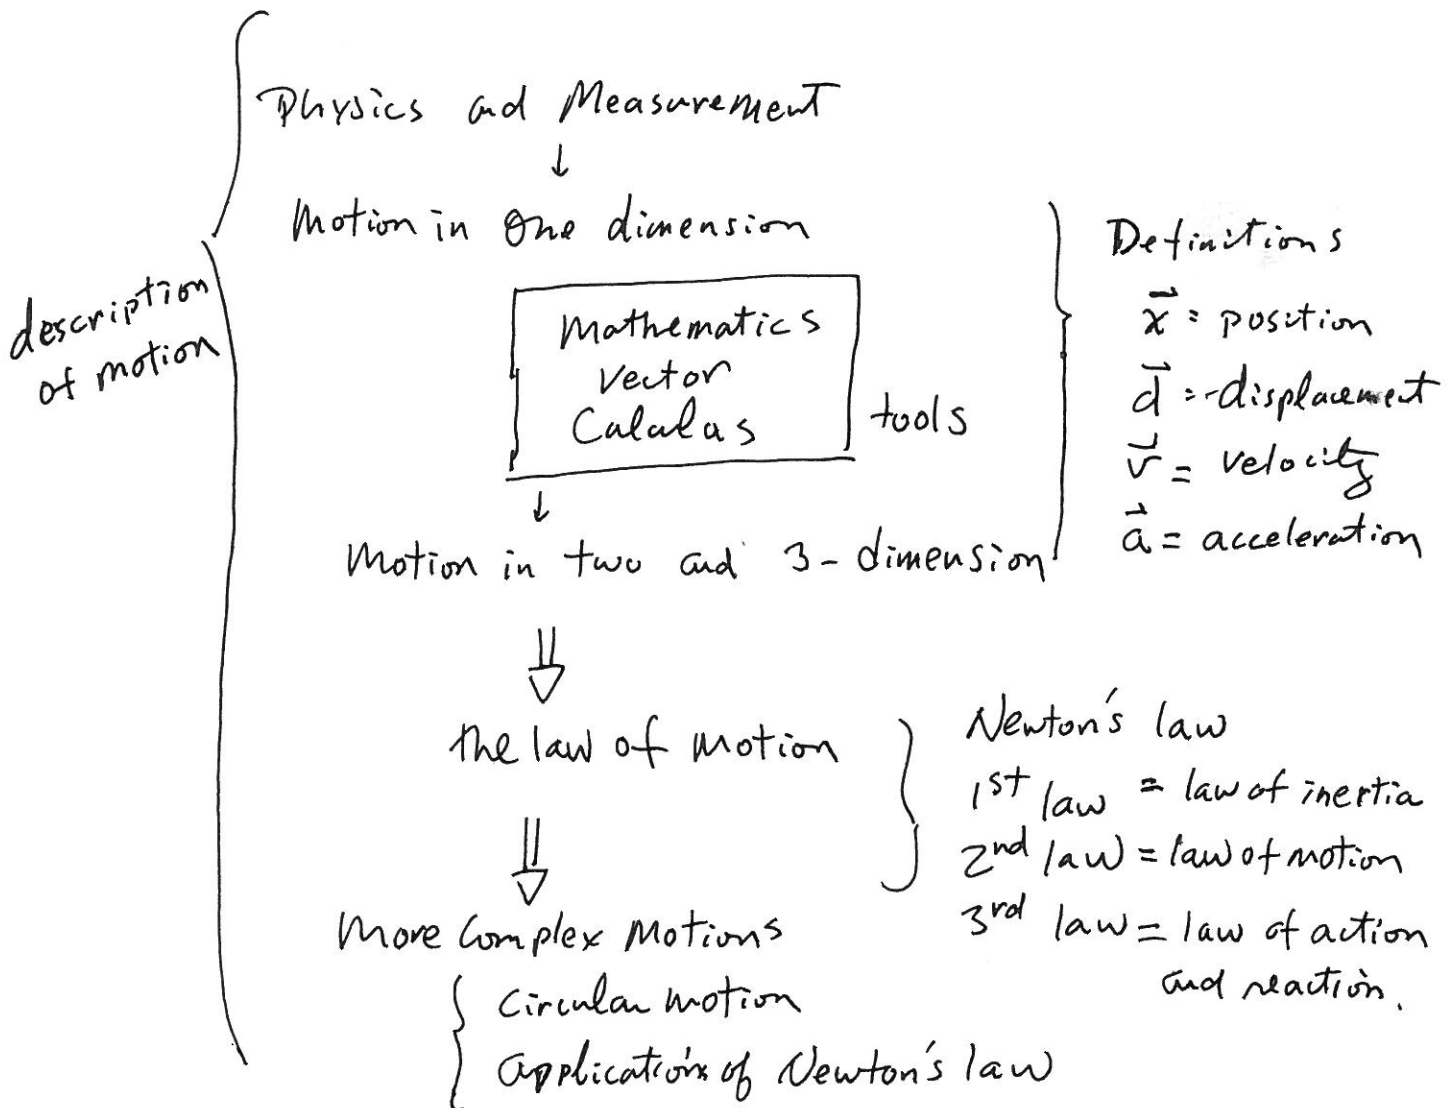 Physics and Measurement
↓
Motion in One dimension
description
of motion
Mathematics
Vector
Calculas
tools
↓
Motion in two and 3-dimension
Definitions
x⃗ = position
d⃗ = displacement
v⃗ = velocity
a⃗ = acceleration
⇓
the law of motion
Newton's law
1st law = law of inertia
2nd law = law of motion
3rd law = law of action
and reaction.
⇓
More Complex Motions
Circular motion
Applications of Newton's law